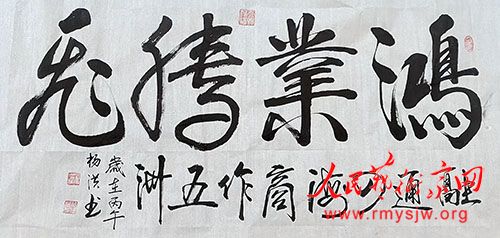 鴻業騰飛
融通四海商作五洲
歲在丙午
杨洪书
www.rmysjw.org